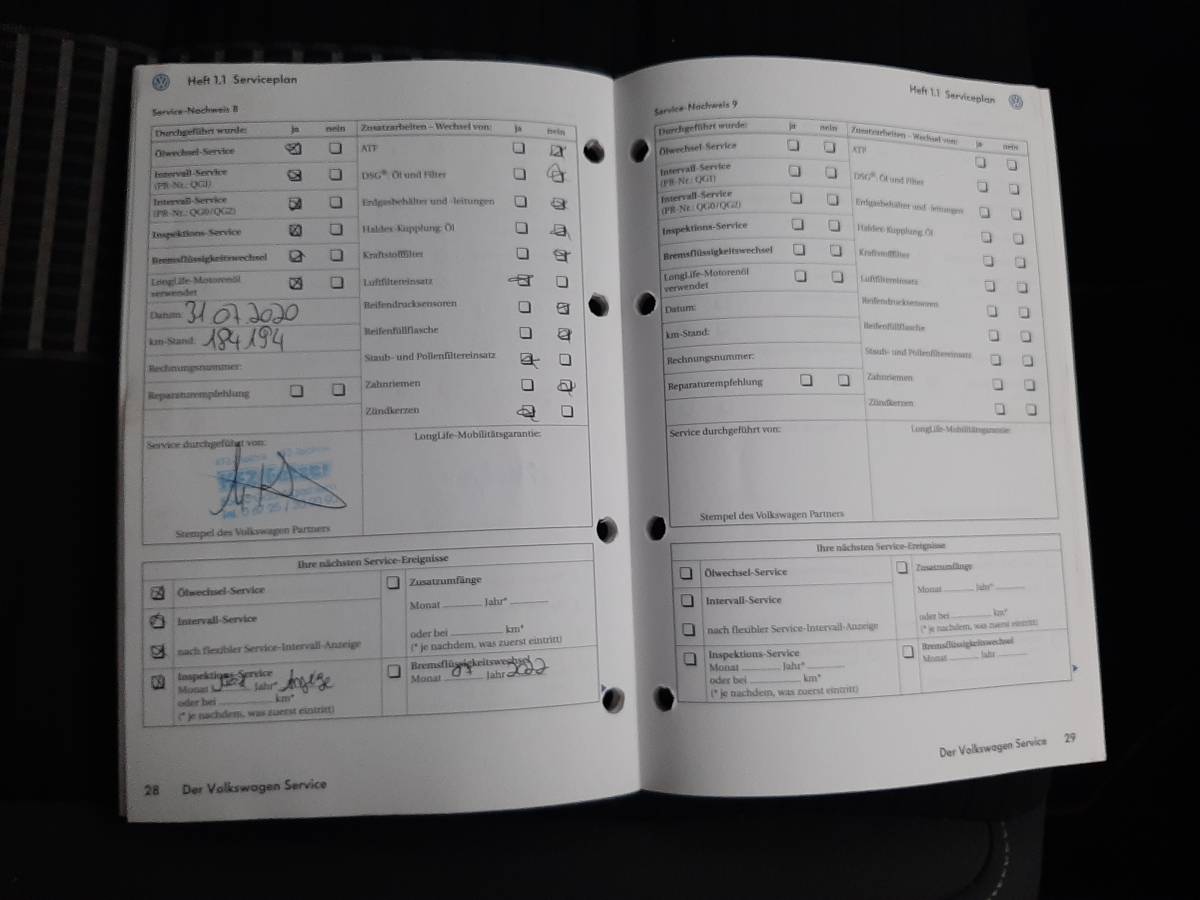 Heft 1.1 Serviceplan
Service-Nachweis 8
Durchgeführt wurde: ja nein
Ölwechsel-Service
Intervall-Service
(PR-Nr.: QG1)
Intervall-Service
(PR-Nr.: QG0/QG2)
Inspektions-Service
Bremsflüssigkeitswechsel
LongLife-Motorenöl
verwendet
Datum: 31 07 2020
km-Stand: 184194
Rechnungsnummer:
Reparaturempfehlung
Zusatzarbeiten – Wechsel von: ja nein
ATF
DSG®: Öl und Filter
Erdgasbehälter und -leitungen
Haldex-Kupplung: Öl
Kraftstofffilter
Luftfiltereinsatz
Reifendrucksensoren
Reifenfüllflasche
Staub- und Pollenfiltereinsatz
Zahnriemen
Zündkerzen
Service durchgeführt von:
Stempel des Volkswagen Partners
LongLife-Mobilitätsgarantie:
Ihre nächsten Service-Ereignisse
Ölwechsel-Service
Intervall-Service
nach flexibler Service-Intervall-Anzeige
Inspektions-Service
Monat Jahr* Anzeige
oder bei km*
(* je nachdem, was zuerst eintritt)
Zusatzumfänge
Monat Jahr*
oder bei km*
(* je nachdem, was zuerst eintritt)
Bremsflüssigkeitswechsel
Monat 07 Jahr 2022
28 Der Volkswagen Service
Heft 1.1 Serviceplan
Service-Nachweis 9
Durchgeführt wurde: ja nein
Ölwechsel-Service
Intervall-Service
(PR-Nr.: QG1)
Intervall-Service
(PR-Nr.: QG0/QG2)
Inspektions-Service
Bremsflüssigkeitswechsel
LongLife-Motorenöl
verwendet
Datum:
km-Stand:
Rechnungsnummer:
Reparaturempfehlung
Zusatzarbeiten – Wechsel von: ja nein
ATF
DSG®: Öl und Filter
Erdgasbehälter und -leitungen
Haldex-Kupplung: Öl
Kraftstofffilter
Luftfiltereinsatz
Reifendrucksensoren
Reifenfüllflasche
Staub- und Pollenfiltereinsatz
Zahnriemen
Zündkerzen
Service durchgeführt von:
Stempel des Volkswagen Partners
LongLife-Mobilitätsgarantie:
Ihre nächsten Service-Ereignisse
Ölwechsel-Service
Intervall-Service
nach flexibler Service-Intervall-Anzeige
Inspektions-Service
Monat Jahr*
oder bei km*
(* je nachdem, was zuerst eintritt)
Zusatzumfänge
Monat Jahr*
oder bei km*
(* je nachdem, was zuerst eintritt)
Bremsflüssigkeitswechsel
Monat Jahr
Der Volkswagen Service 29